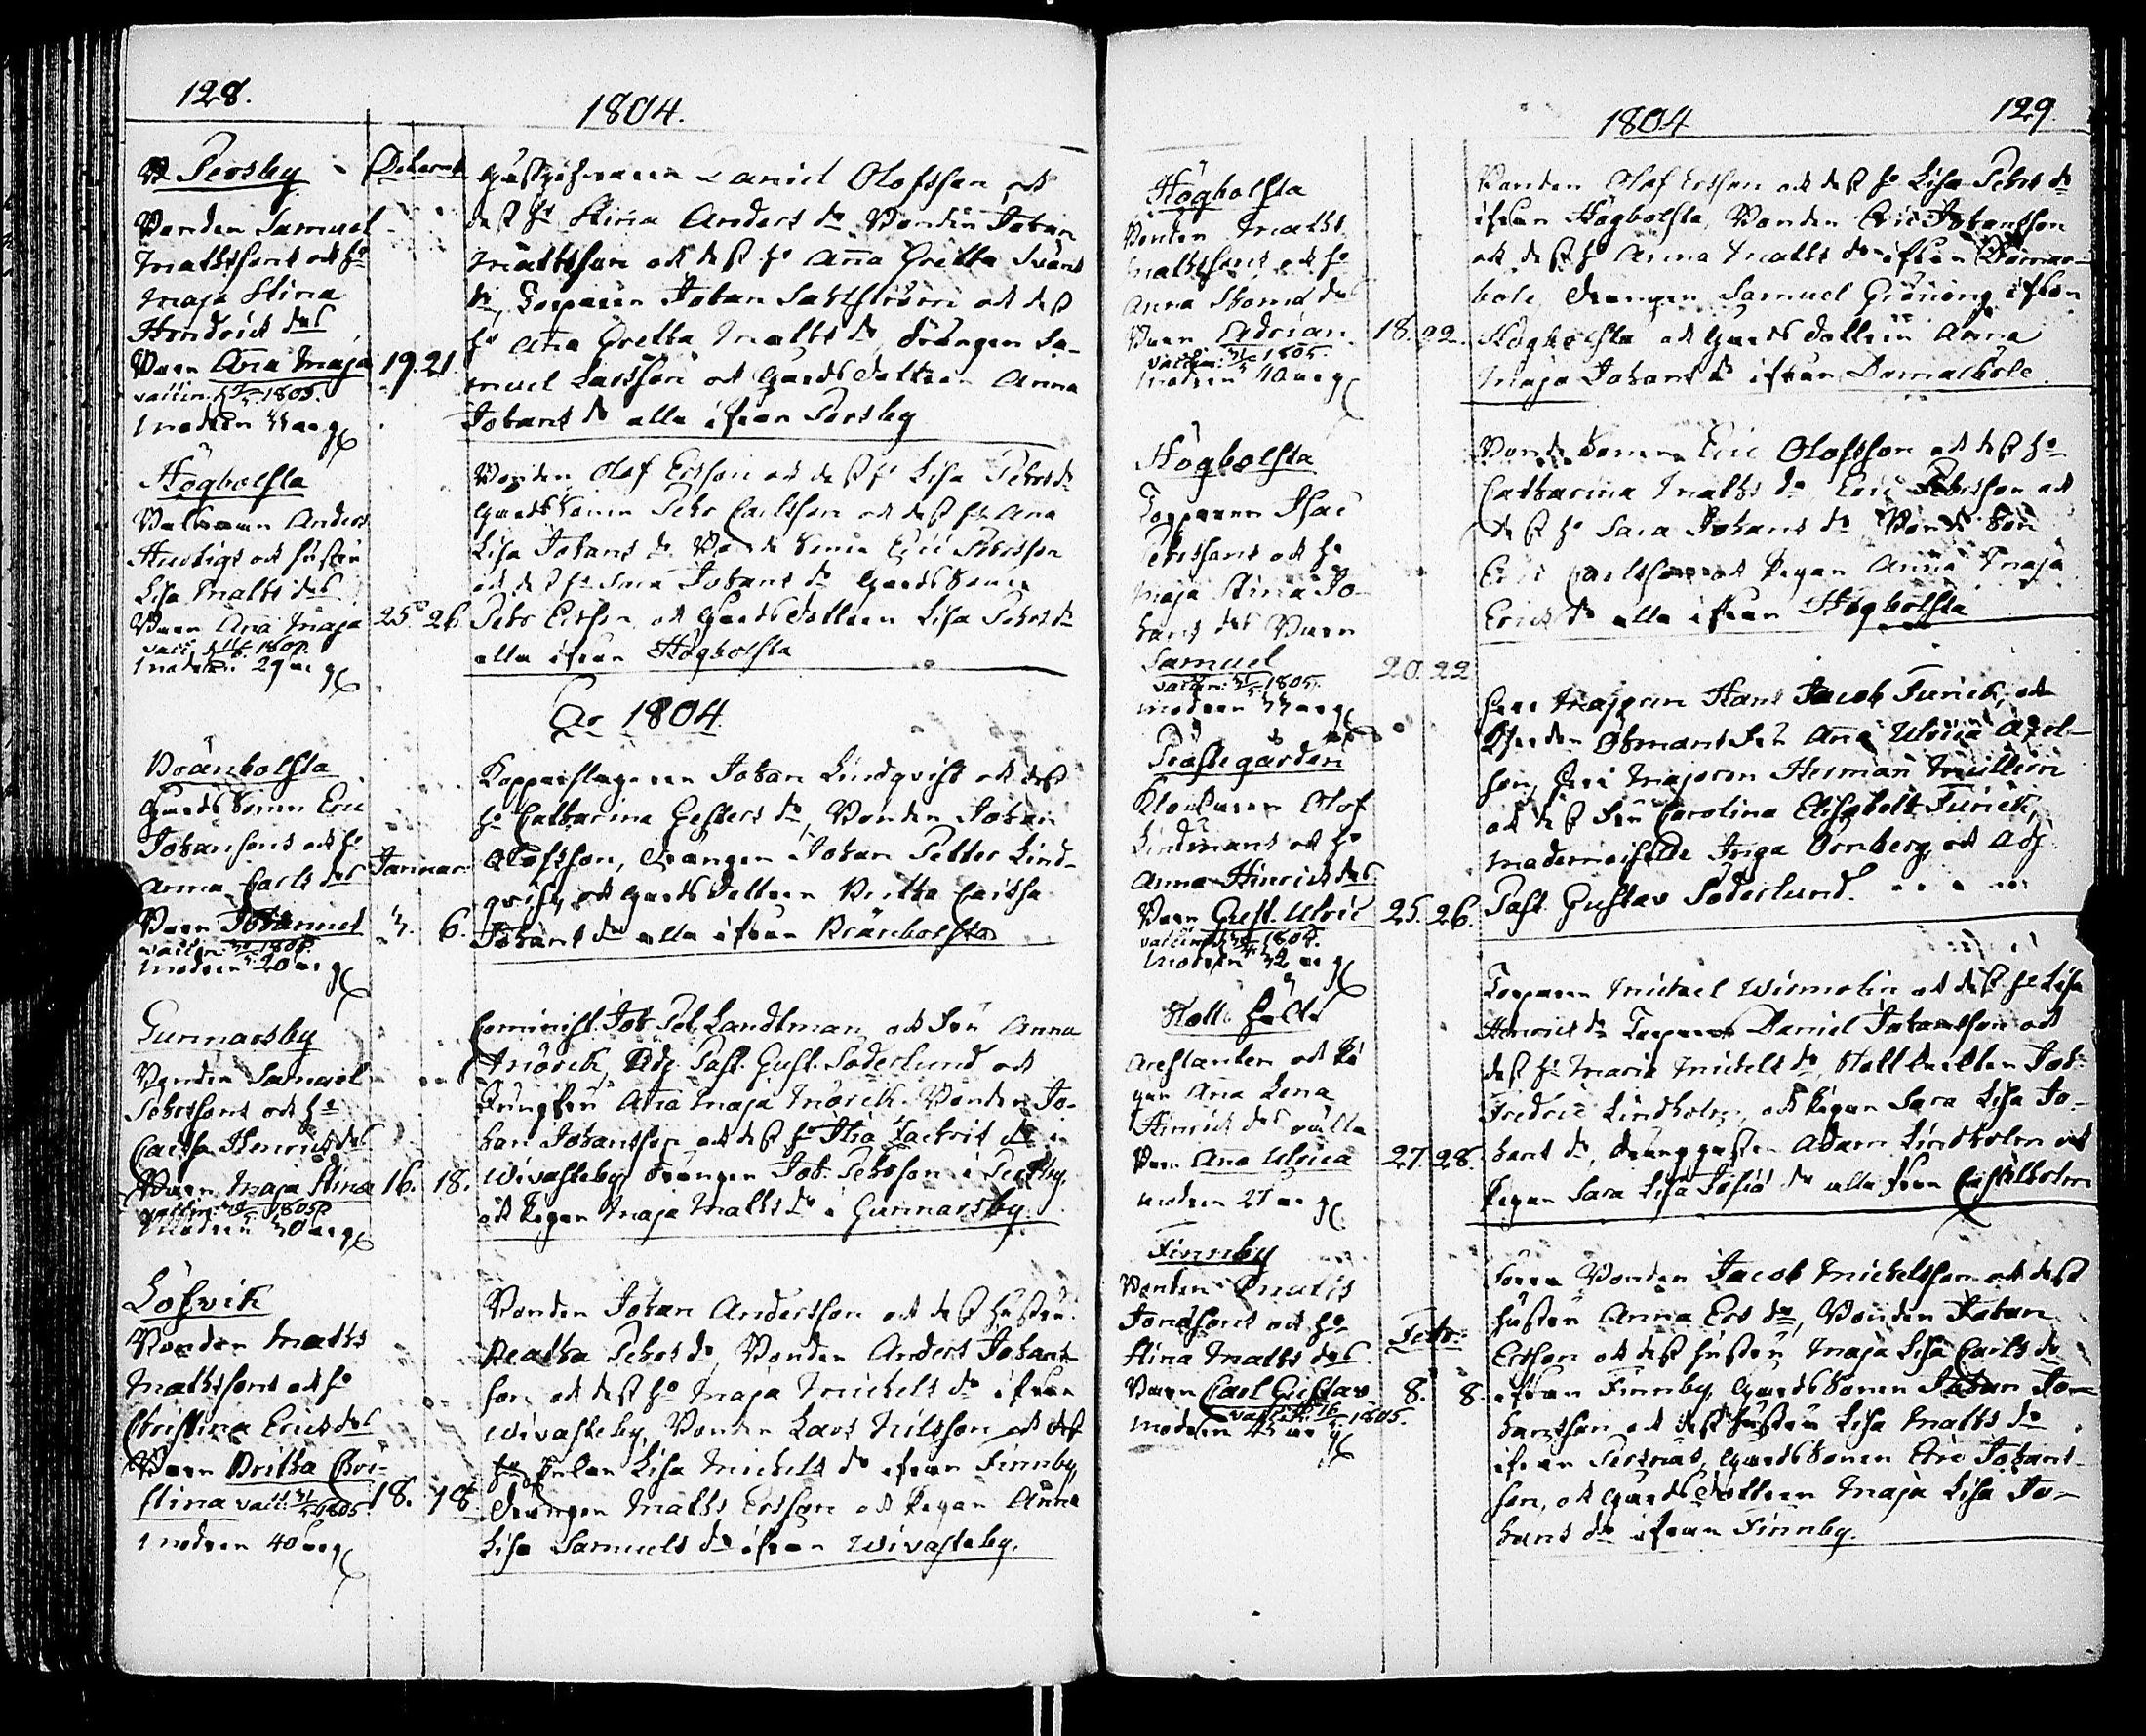 128.
1804.
Persby
Decemb
Bonden Samuel
Mathssons och h:o
Maja Stina
Hendrics d:s
Barn Ana Maja 19. 21.
vaccin. 1805.
modren år g
Gästgifvaren Daniel Olofsson och
dess h:o Stina Anders d:r Bonden Johan
Mattsson och dess h:o Anna Gretta Svens
d:r, Torparen Johan Sahlström och dess
h:o Ana Gretta Matts d:r, drängen Sa-
muel Larsson och Gårdsdottren Anna
Johans d:r alla ifrån Persby
Högbolsta
Anders
och hustru
Lisa Matts d:s
Barn Ana Maja 25. 26
vacc. 180
modren 29 år g
Bonden Olof Ersson och dess h:o Lisa Pehrs d:r
Gårdssonen Pehr Carlsson och dess h:o Ana
Lisa Johans d:r Bondesonen Eric Pehrsson
och dess h:o Sara Johans d:r Gårdssonen
Pehr Ersson och Gårdsdottren Lisa Pehrs d:r
alla ifrån Högbolsta
A:o 1804.
Bränbolsta
Gårdssonen Eric
Johansons och h:o
Anna Carls d:s
Januar
Barn Johannes 3. 6.
vaccin. 180
modren 20 år g
Kopparslagaren Johan Lindqvist och dess
h:o Catharina Gesters d:r, Bonden Johan
Olofsson, drängen Johan Petter Lind-
qvist, och Gårdsdottren Britta Caisa
Johans d:r alla ifrån Bränbolsta
Gunnarsby
Bonden Samuel
Pehrssons och h:o
Caisa Henrics d:s
Barn Maja Stina 16. 18.
vaccin. 1805
modren 30 år g
Comminist. Joh. Pet. Landtman och Fru Anna
Mörck, Adj. Past. Gust. Söderlund och
Jungfru Ana Maja Mörck. Bonden Jo-
han Johansson och dess h:o Zachris d:r i
Wivasteby, drängen Joh. Pehrsson i
och Pigan Maja Matts d:r i Gunnarsby.
Löfvik
Bonden Maths
Mathssons och h:o
Christina Erics d:s
Barn Britha Chri-
stina vacc. 1805. 18. 18.
modren 40 år g
Bonden Johan Andersson och dess hustru
Beatha Pehrs d:r, Bonden Anders Johans-
son och dess h:o Maja Michels d:r ifrån
Wivasteby, Bonden Lars Nilsson och
Enkan Lisa Michels d:r ifrån Finnby,
Drängen Maths Ersson och Pigan Anna
Lisa Samuels d:r ifrån Wivasteby.
1804
129.
Högbolsta
Bonden Maths
Mathssons och h:o
Anna Thomæ d:s
Barn Adrian. 18. 22.
vaccin. 1805.
modren 40 år g
Bonden Olof Ersson och dess h:o Lisa Pehrs d:r
ifrån Högbolsta, Bonden Eric Johansson
och dess h:o Anna Matts d:r ifrån Domar-
böle, drängen Samuel Gröning ifrån
Högbolsta och Gårdsdottren Anna
Maja Johans d:r ifrån Domarböle.
Högbolsta
Torparen Isac
Pehrssons och h:o
Maja Stina Jo-
hans d:s Barn
Samuel 20. 22
vaccin. 1805.
modren 33 år g
Bondesonen Eric Olofsson och dess h:o
Catharina Maths d:r, Eric Pehrsson och
dess h:o Sara Johans d:r, Bondeson
Eric Carlsson och Pigan Anna Maja
Erics d:r alla ifrån Högbolsta
Prästegården
Klockaren Olof
Lindmans och h:o
Anna Hinrics d:s
Barn Gust. Ulric 25. 26.
vaccin. 180
modren 32 år g
Herr Majoren Hans Jacob Furuck, och
Fru Anna Ulrica
son, Herr Majoren Herman Müllern
och dess Fru Carolina Elisabeth Furuck,
Mademoiselle Inga Örnberg och Adj.
Past. Gustav Söderlund.
Arestanten och Pi
gan Ana Lena
Hinrics d:s
Barn Ana Ulrica 27. 28.
modren 27 år g
Torparen Michael Wirmolin och dess h:o Lisa
Henrics d:r Torparen Daniel Johansson och
dess h:o Maria Michels d:r, Joh:
Fredric Lindholm, och Pigan Sara Lisa Jo-
hans d:r, Adam Lindholm och
Pigan Sara Lisa d:r alla från Castelholm
Finnby
Bonden Maths
Jonssons och h:o
Stina Maths d:s
Febr:
Barn Carl Gustav 8. 8.
vacc. 16 1805.
modren 43 år g
Bonden Jacob Michelsson och dess
hustru Anna Ers d:r, Bonden Johan
Ersson och dess hustru Maja Lisa Carls d:r
ifrån Finnby, Gårdssonen Johan Jo-
hansson och dess hustru Lisa Maths d:r
ifrån Gårdssonen Eric Johans-
son, och Gårdsdottren Maja Lisa Jo-
hans d:r ifrån Finnby.